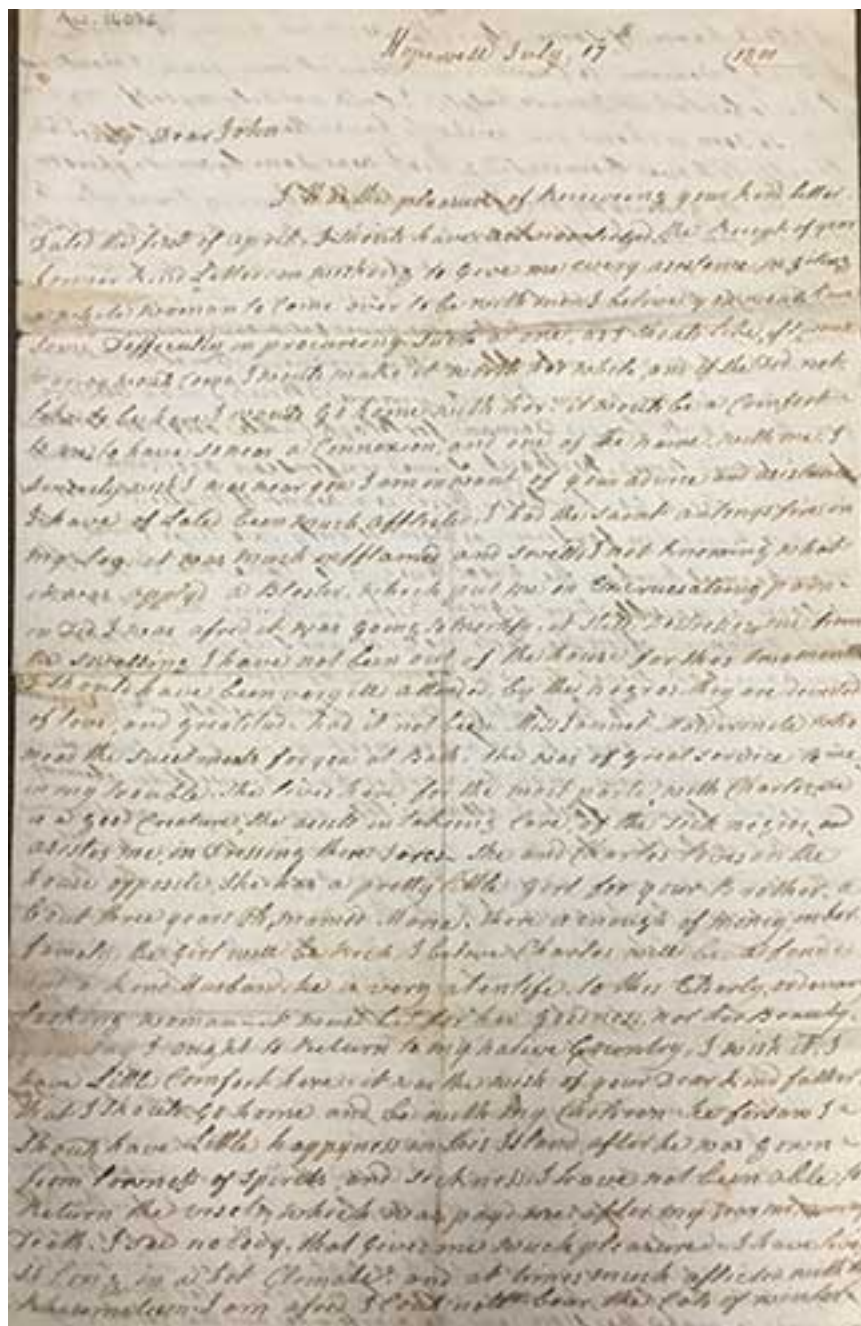 Acc. 14036
Hopewell July, 17 1811
My Dear John
I had the pleasure of Receiving your kind letter
Dated the first of april. I should have acknowledged the Receipt of your
former kind Letter in wishing to Give me every assistance in
woman to Come over to be with me. I believe you would
some Difficulty in procuring such a one, as I should like, if
would come I would make it worth her while, and if she did not
like to be here I would Go home with her. it would be a Comfort
to me to have so near a Connexion, and one of the name, with me. I
sincerely wish I was near you I am in want of your advice and assistance
I have of Late been much afflicted. I had the Saint antonys fire in
my Leg. it was much inflamed and swelld not knowing what
it was applyd a Blister, which put me in pain
I was afred it was going to mortify. it still me from
the swelling I have not been out of the house for
I Should have been very ill attended by the negroes they are devoid
of love, and gratitud. had it not been Miss who
mad the sweetmeats for you at Bath. She was of great service to me
in my trouble. She lives here for the most parte with Charles she
is a good Creature, she asists in takeing Care of the sick negroes, and
asistes me, in Dressing there sores. She and Charles lives in the
house opposite She has a pretty little Girl for your Brother, a
bout three years old, named Maria. there is enough of Money
the Girl will be Rich I believe Charles will be
a kind Husband. he is very atentife, to this Elderly, ordenary
Looking woman it must be for her Goodness, not her Beauty.
you say I ought to Return to my native Country, I wish it. I
have Little Comfort here. it was the wish of your Dear kind father
that I Should Go home and be with my Children he forsaw I
Should have Little happyness in this Island, after he was Gown
from lowness of spirits and sickness I have not been able to
Return the visets which was payd me after my
Death. I see no body, that Gives me much pleasure. I have lived
so Long in a hot Climate and at times much aflicted with the
Rheumatism I am afred I Coud not bear the Cold of winter